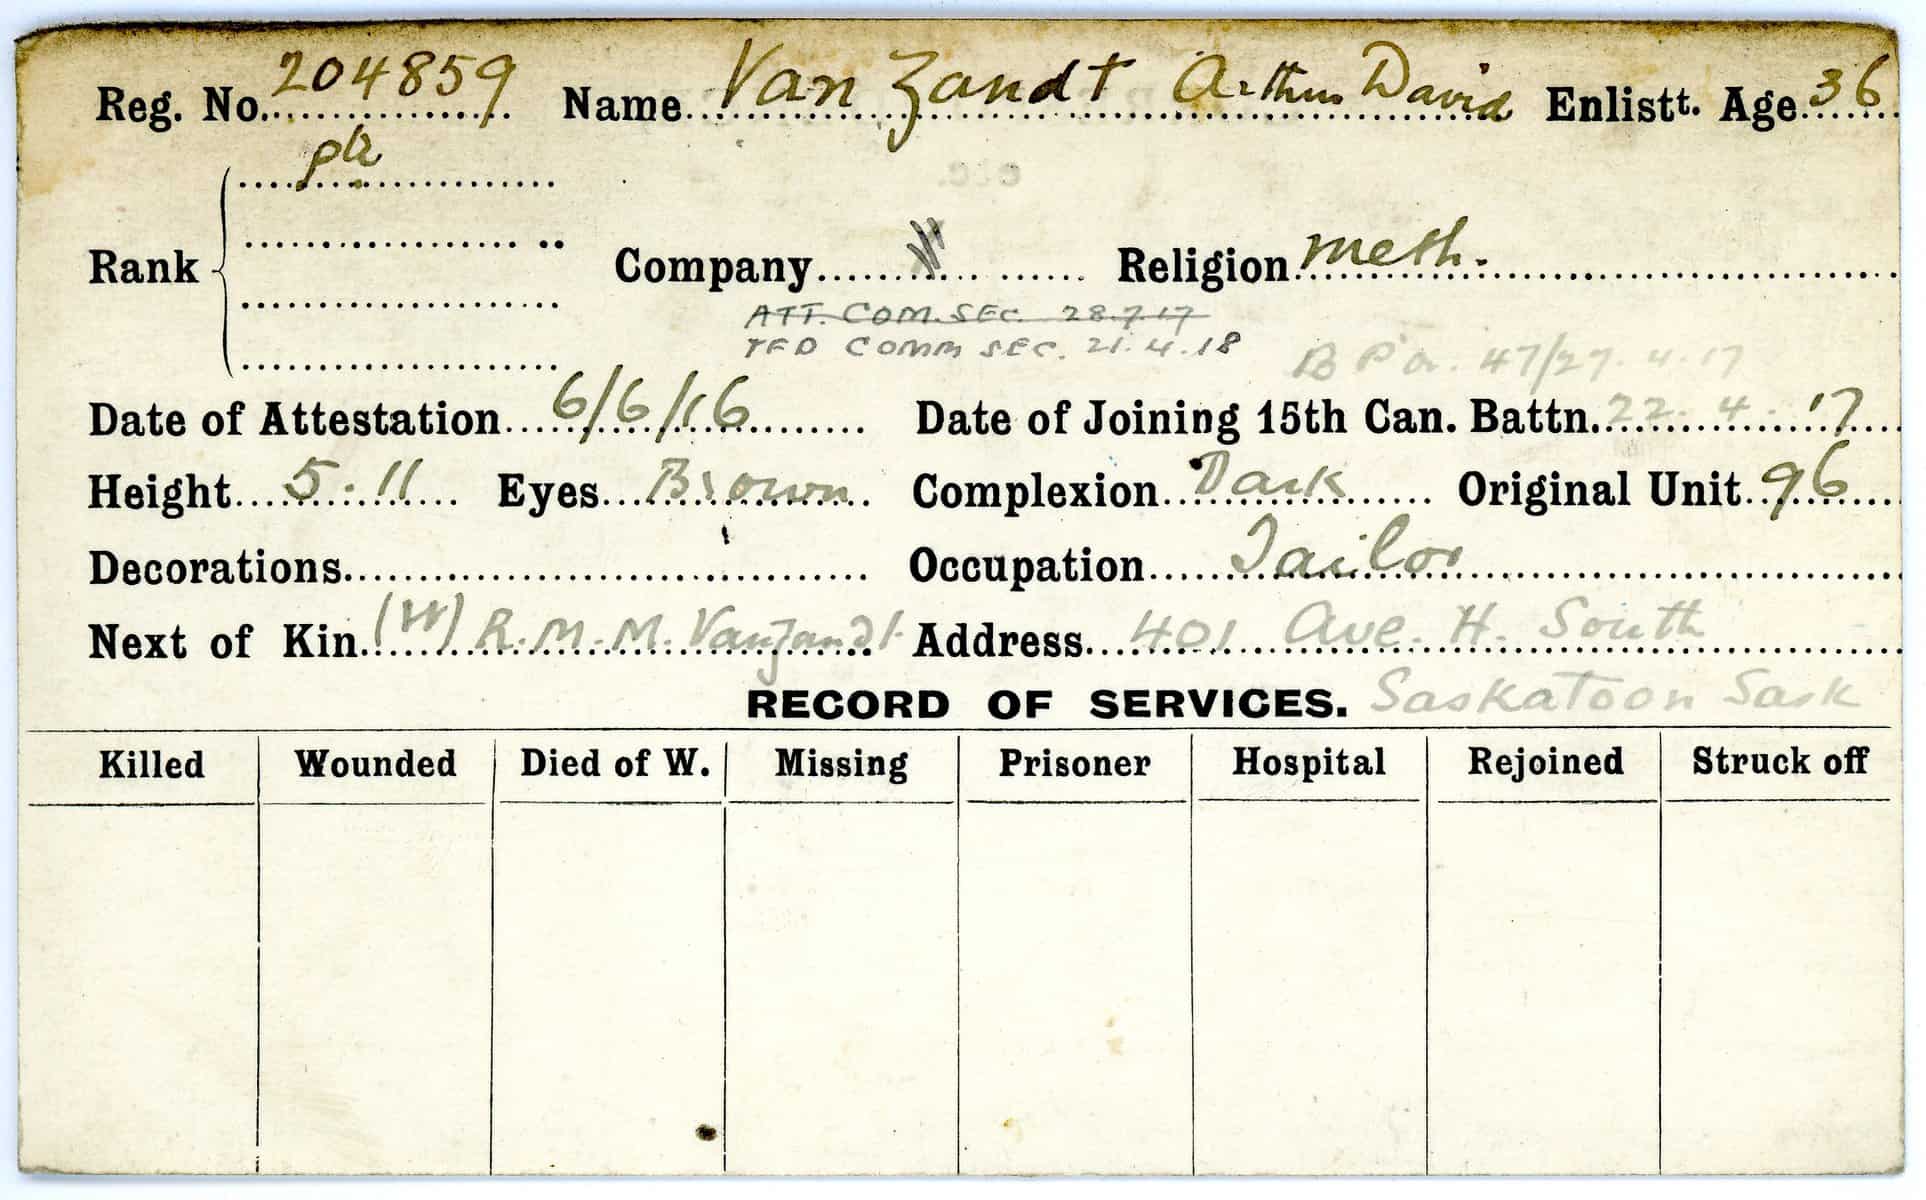 Reg. No. 204859 Name Van Zandt Arthur David Enlistt. Age 36
Rank pte
Company Religion meth.
ATT. COM. SEC. 28.7.17
TFD COMM SEC. 21.4.18
B P'O. 47/27.4.17
Date of Attestation 6/6/16 Date of Joining 15th Can. Battn. 22.4.17
Height 5.11 Eyes Brown Complexion Dark Original Unit 96
Decorations Occupation Tailor
Next of Kin (W) R.M.M. Vanzandt Address 401 Ave. H. South
RECORD OF SERVICES. Saskatoon Sask
Killed Wounded Died of W. Missing Prisoner Hospital Rejoined Struck off